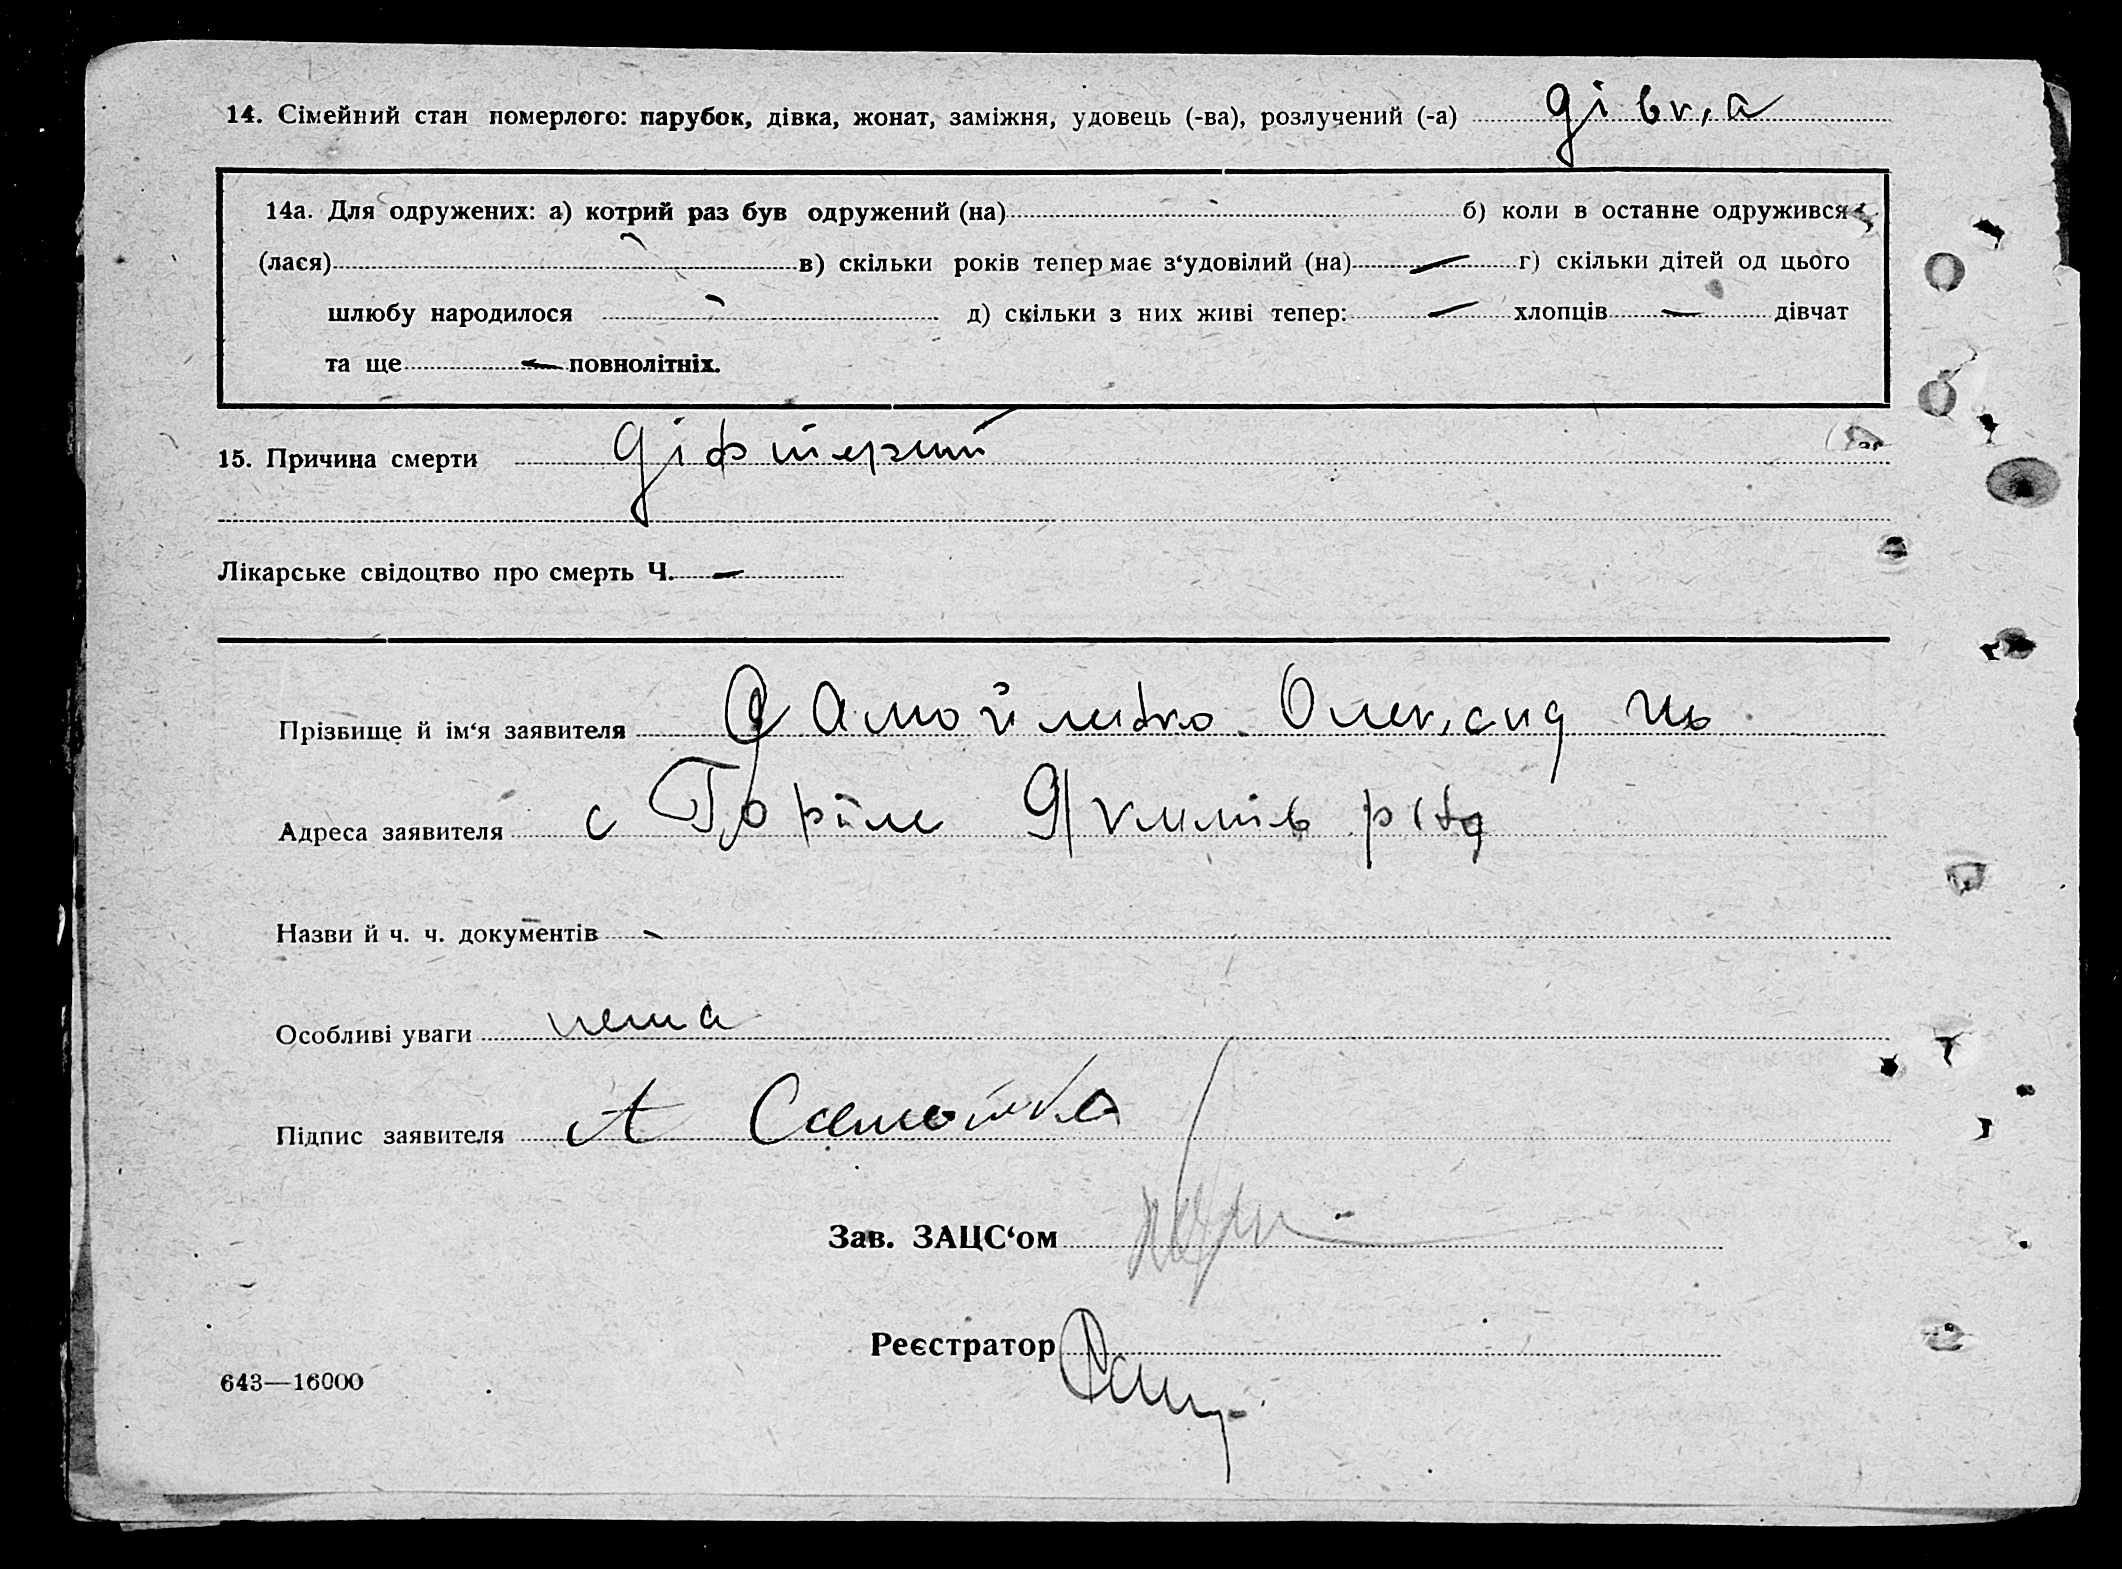 14. Сімейний стан померлого: парубок, дівка, жонат, заміжня, удовець (-ва), розлучений (-а) дівка
14а. Для одружених: а) котрий раз був одружений (на) б) коли в останнє одружився
(лася) в) скільки років тепер має з‘удовілий (на) — г) скільки дітей од цього
шлюбу народилося д) скільки з них живі тепер: — хлопців — дівчат
та ще — повнолітніх.
15. Причина смерти діфтерит
Лікарське свідоцтво про смерть Ч. —
Прізвище й ім‘я заявителя
Адреса заявителя с
Назви й ч. ч. документів -
Особливі уваги нема
Підпис заявителя А
Зав. ЗАЦС‘ом
Реєстратор
643—16000